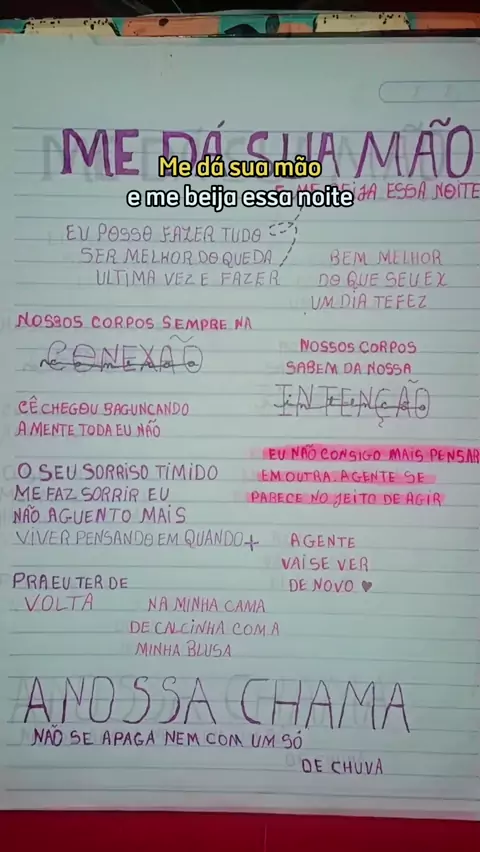 ME DÁ SUA MÃO
Me dá sua mão
e me beija essa noite
E ME BEIJA ESSA NOITE
EU POSSO FAZER TUDO
SER MELHOR DO QUE DA
ULTIMA VEZ E FAZER
BEM MELHOR
DO QUE SEU EX
UM DIA TE FEZ
NOSSOS CORPOS SEMPRE NA
CONEXÃO
NOSSOS CORPOS
SABEM DA NOSSA
INTENÇÃO
CÊ CHEGOU BAGUNCANDO
A MENTE TODA EU NÃO
EU NÃO CONSIGO MAIS PENSAR
EM OUTRA. AGENTE SE
PARECE NO JEITO DE AGIR
O SEU SORRISO TIMIDO
ME FAZ SORRIR EU
NÃO AGUENTO MAIS
VIVER PENSANDO EM QUANDO+
AGENTE
VAI SE VER
DE NOVO ♥
PRA EU TER DE
VOLTA
NA MINHA CAMA
DE CALCINHA COM A
MINHA BLUSA
A NOSSA CHAMA
NÃO SE APAGA NEM COM UM SÓ
DE CHUVA